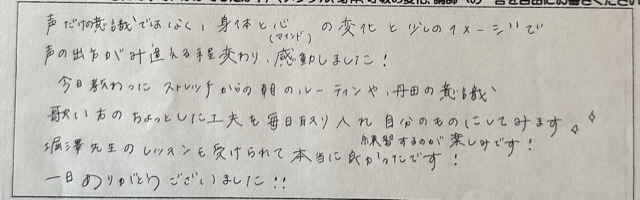 声だけの意識ではなく、身体と心(マインド)の変化と少しのイメージで
声の出方が見違える程変わり、感動しました！
今日教わったストレッチからの朝のルーティンや、丹田の意識
歌い方のちょっとした工夫を毎日取り入れ自分のものにしてみます
練習するのが楽しみです！
堀澤先生のレッスンも受けられて本当に良かったです！
一日ありがとうございました！！